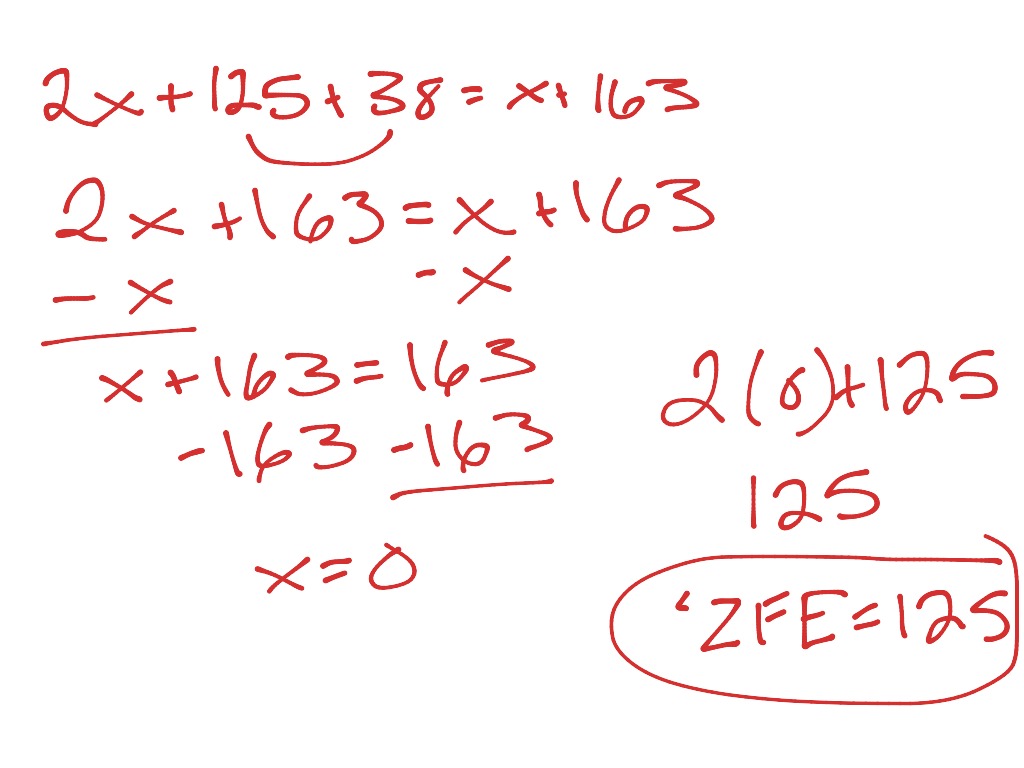 2x+125+38=x+163
2x+163=x+163
-x -x
x+163=163
-163 -163
x=0
2(0)+125
125
∠ZFE=125